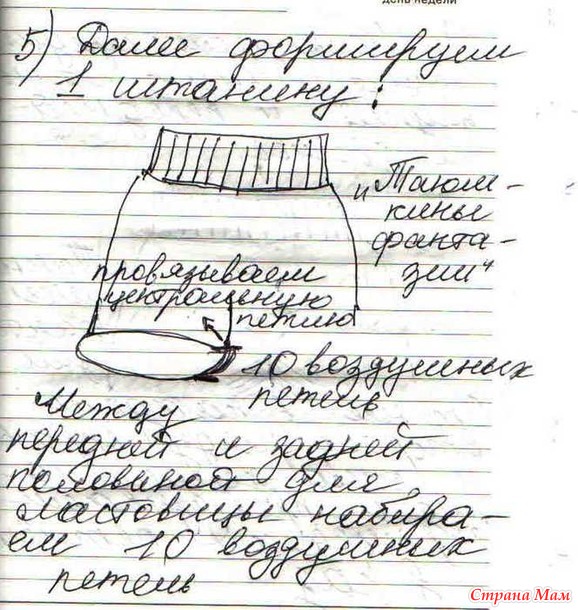 день недели
5) Далее формируем
1 штанину:
„Таюш-
кины
фанта-
зии“
провязываем
центральную
петлю
10 воздушных
петель
Между
передней и задней
половиной для
ластовицы набира-
ем 10 воздушных
петель
Страна Мам